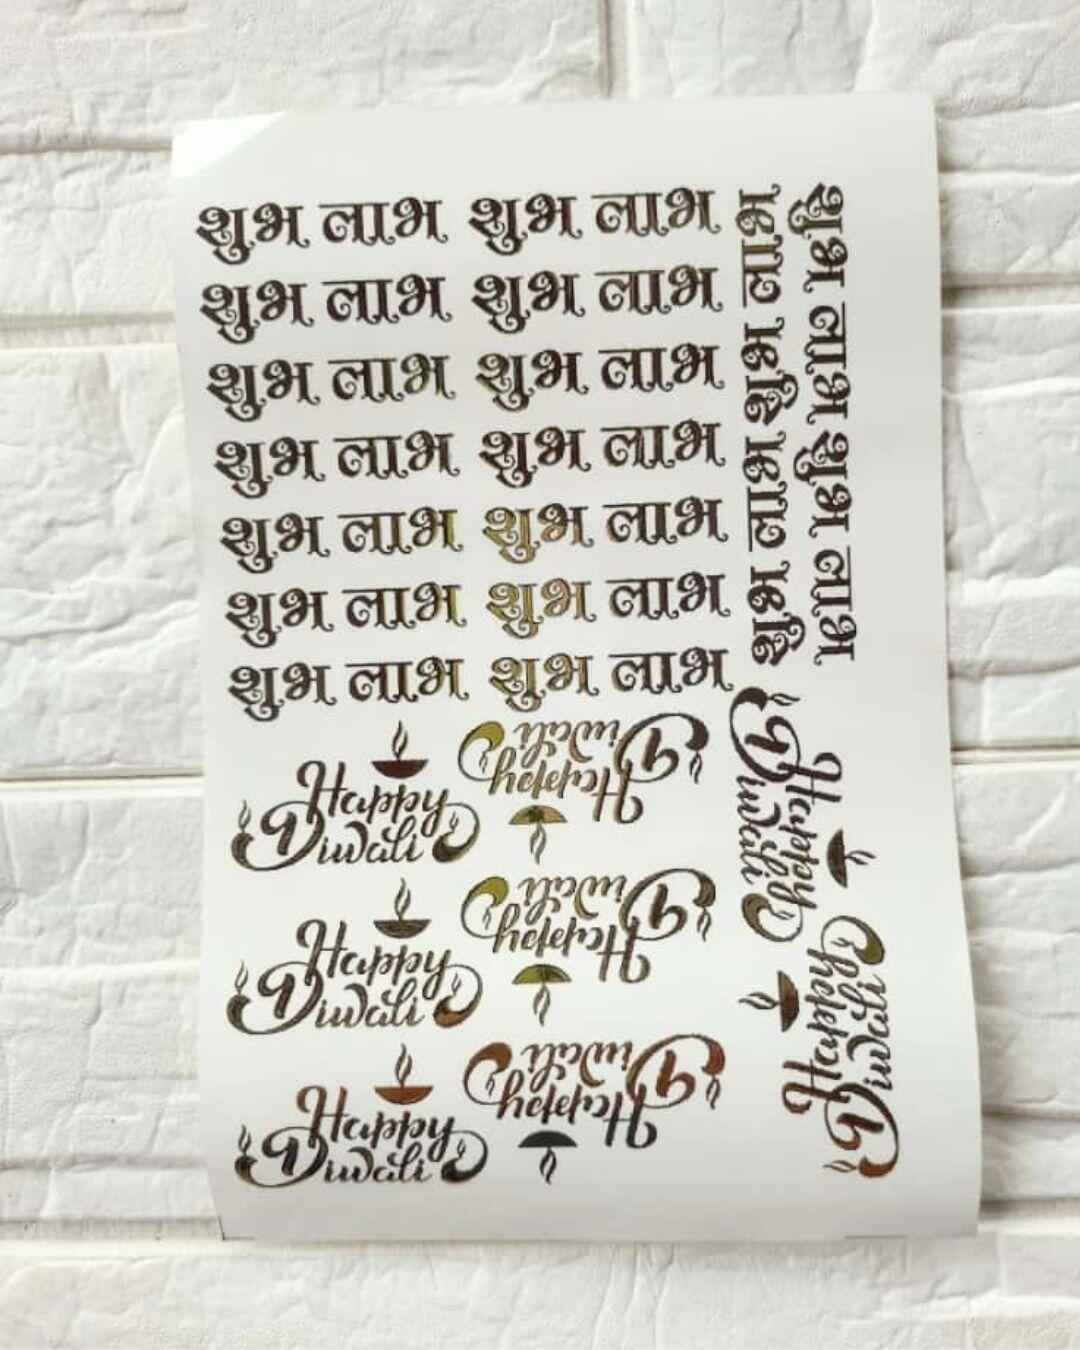 शुभ लाभ शुभ लाभ
शुभ लाभ शुभ लाभ
शुभ लाभ शुभ लाभ
शुभ लाभ शुभ लाभ
शुभ लाभ शुभ लाभ
शुभ लाभ शुभ लाभ
शुभ लाभ शुभ लाभ
शुभ लाभ शुभ लाभ
शुभ लाभ शुभ लाभ
Happy
Diwali
Happy
Diwali
Happy
Diwali
Happy
Diwali
Happy
Diwali
Happy
Diwali
Happy
Diwali
Happy
Diwali